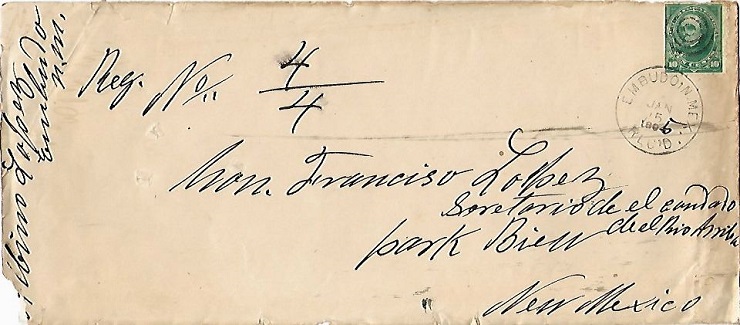 Albino Lopez
Embudo
N.M.
Reg. No.. 4/4
10 10
EMBUDO, N. MEX.
JAN
15
REC'D.
Hon. Francisco Lopez
Secretario de el condado
de el Rio Arriba
park Biew
New Mexico